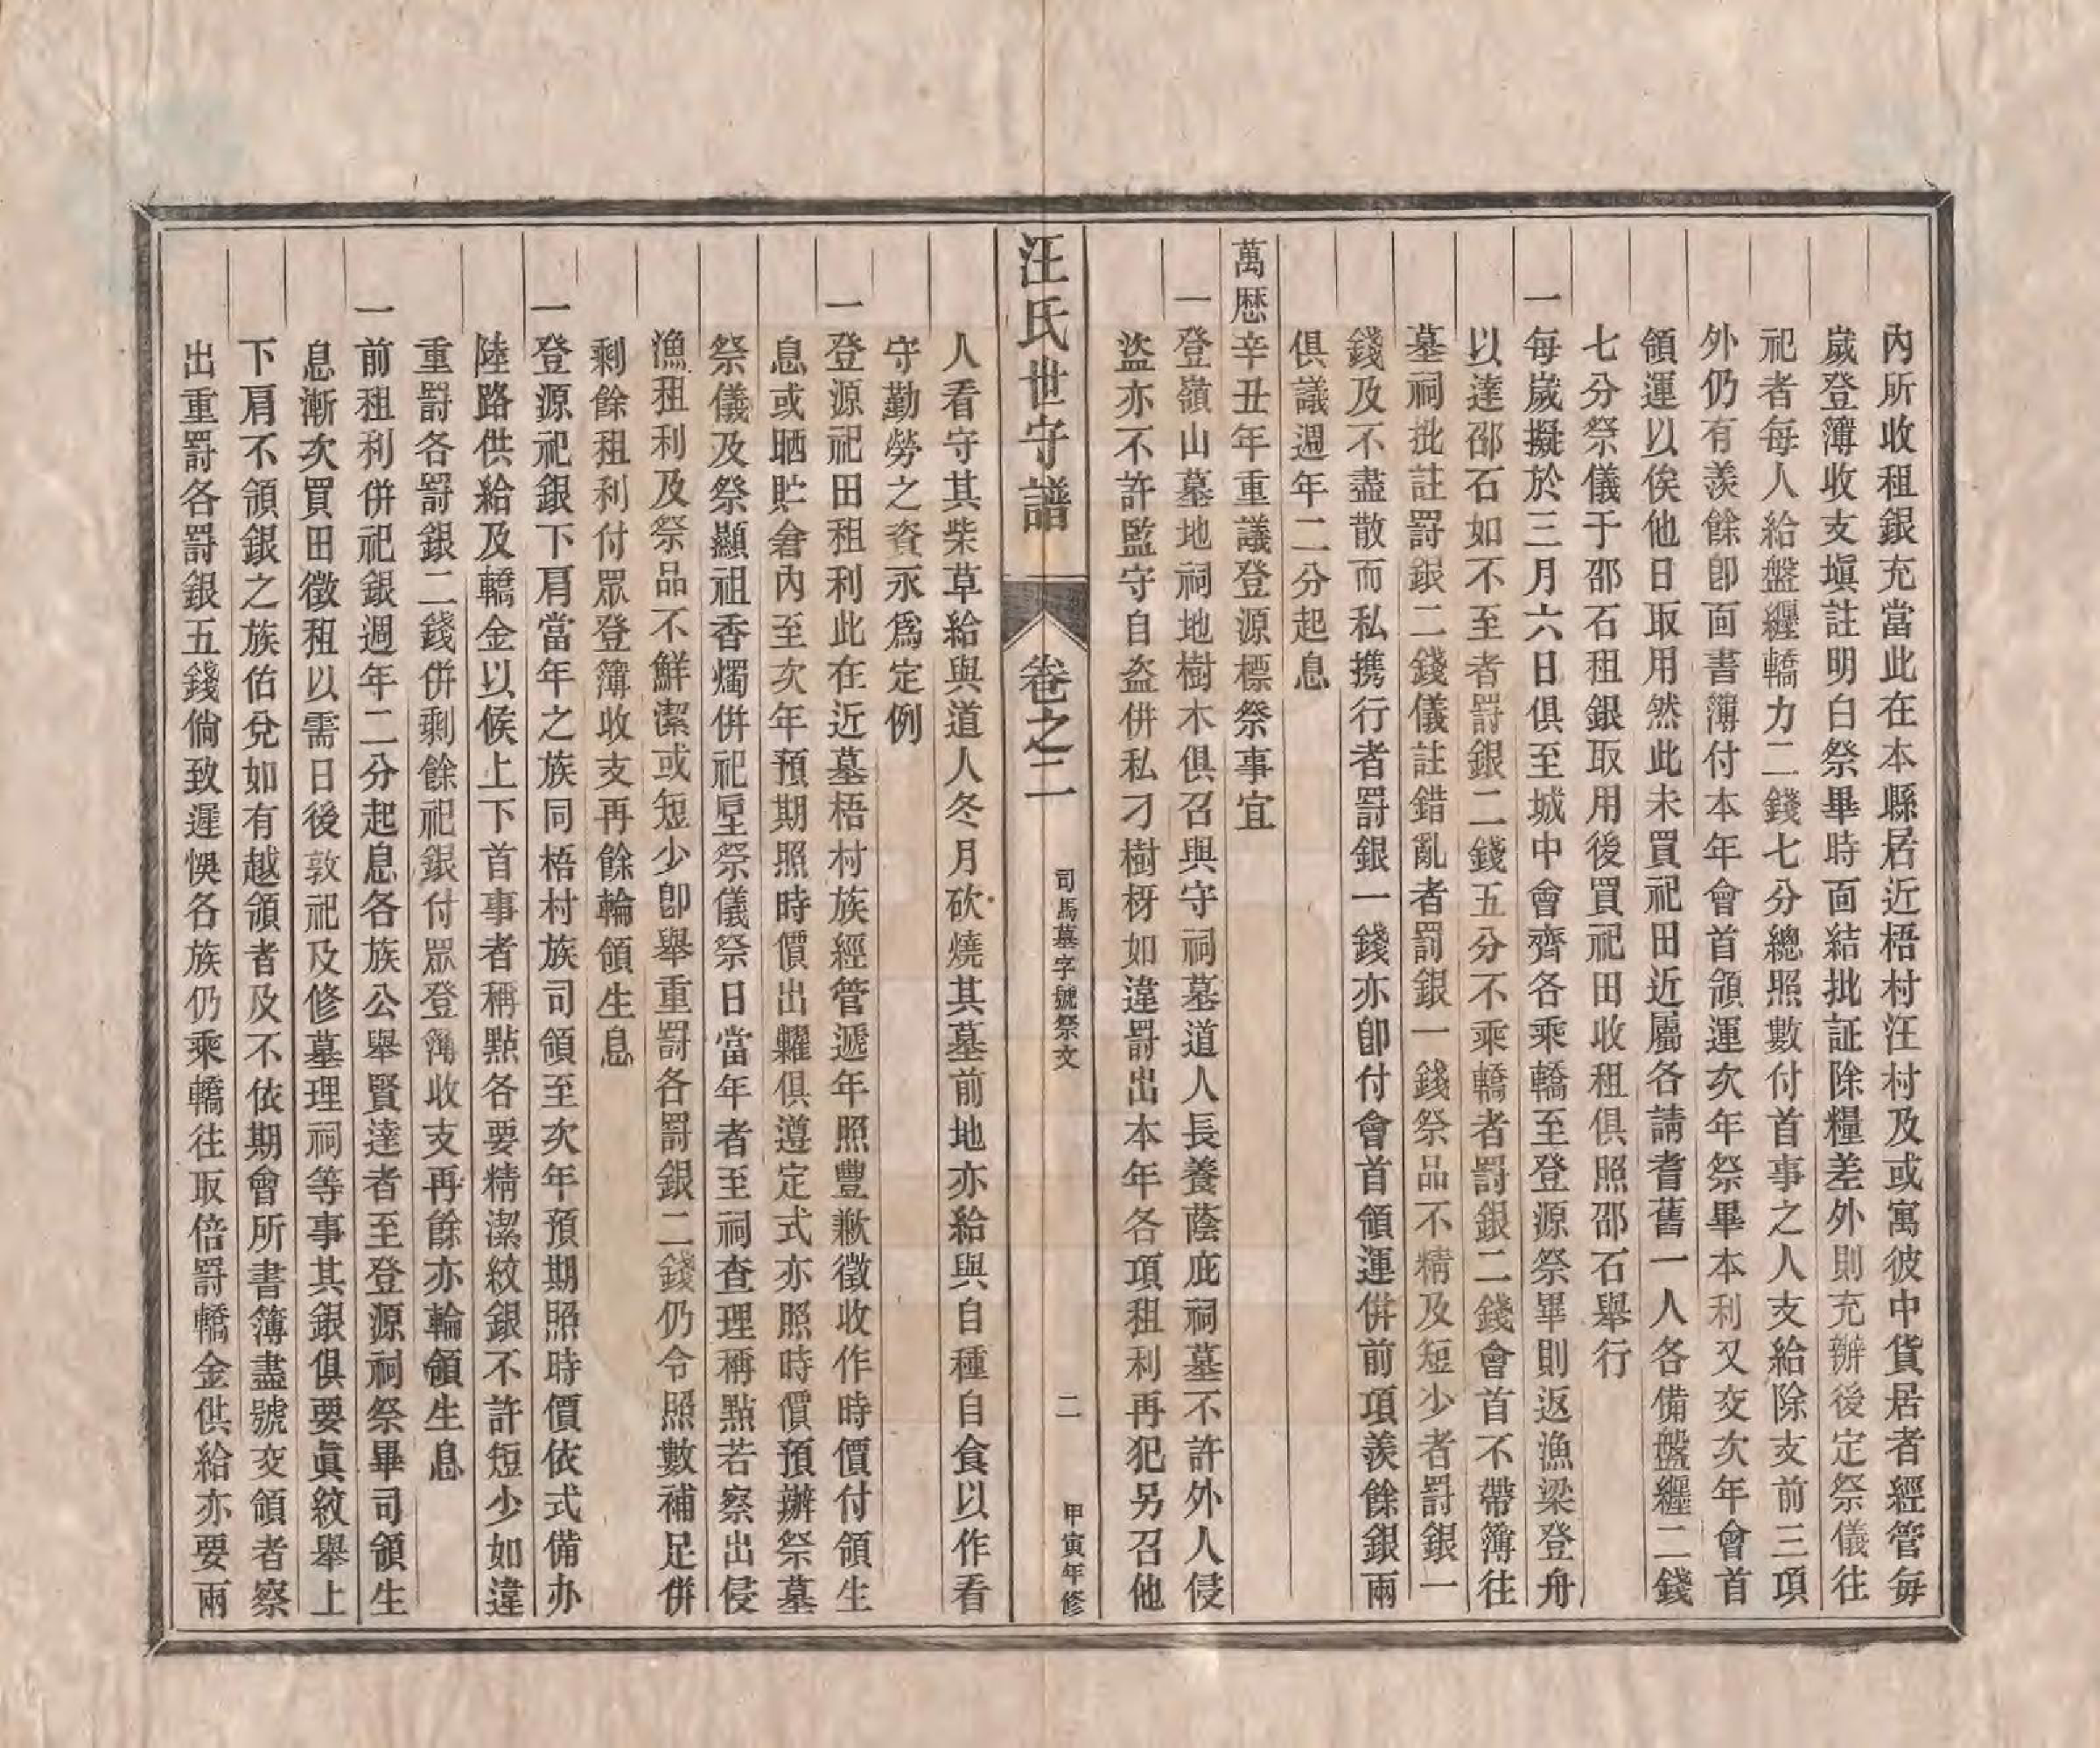 內所收租銀充當此在本縣居近梧村汪村及或寓彼中貨居者經管每
歲登簿收支塡註明白祭畢時面結批証除糧差外則充辦後定祭儀往
祀者每人給盤纒轎力二錢七分總照數付首事之人支給除支前三項
外仍有羡餘卽面書簿付本年會首領運次年祭畢本利又交次年會首
領運以俟他日取用然此未買祀田近屬各請耆舊一人各備盤纒二錢
七分祭儀于邵石租銀取用後買祀田收租俱照邵石舉行
一每歲擬於三月六日俱至城中會齊各乘轎至登源祭畢則返漁梁登舟
以達邵石如不至者罸銀二錢五分不乘轎者罸銀二錢會首不帶簿往
墓祠批註罸銀二錢儀註錯亂者罰銀一錢祭品不精及短少者罸銀一
錢及不盡散而私携行者罸銀一錢亦卽付會首領運併前項羡餘銀兩
俱議週年二分起息
萬歷辛丑年重議登源標祭事宜
一登嶺山墓地祠地樹木俱召與守祠墓道人長養蔭庇祠墓不許外人侵
盜亦不許監守自盜併私刁樹枒如違罸出本年各項租利再犯另召他
汪氏世守譜
卷之二
司馬墓字號祭文
二
甲寅年修
人看守其柴草給與道人冬月砍燒其墓前地亦給與自種自食以作看
守勤勞之資永爲定例
一登源祀田租利此在近墓梧村族經管遞年照豐歉徵收作時價付領生
息或晒貯倉內至次年預期照時價出糶俱遵定式亦照時價預辦祭墓
祭儀及祭顯祖香燭併祀垕祭儀祭日當年者至祠查理稱點若察出侵
漁租利及祭品不鮮潔或短少卽舉重罸各罸銀二錢仍令照數補足併
剩餘租利付眾登簿收支再餘輪領生息
一登源祀銀下肩當年之族同梧村族司領至次年預期照時價依式備办
陸路供給及轎金以候上下首事者稱點各要精潔紋銀不許短少如違
重罸各罸銀二錢併剩餘祀銀付眾登簿收支再餘亦輪領生息
一前租利併祀銀週年二分起息各族公舉賢達者至登源祠祭畢司領生
息漸次買田徵租以需日後敦祀及修墓理祠等事其銀俱要眞紋舉上
下肩不領銀之族佑兌如有越領者及不依期會所書簿盡號交領者察
出重罸各罸銀五錢倘致遲悞各族仍乘轎往取倍罸轎金供給亦要兩